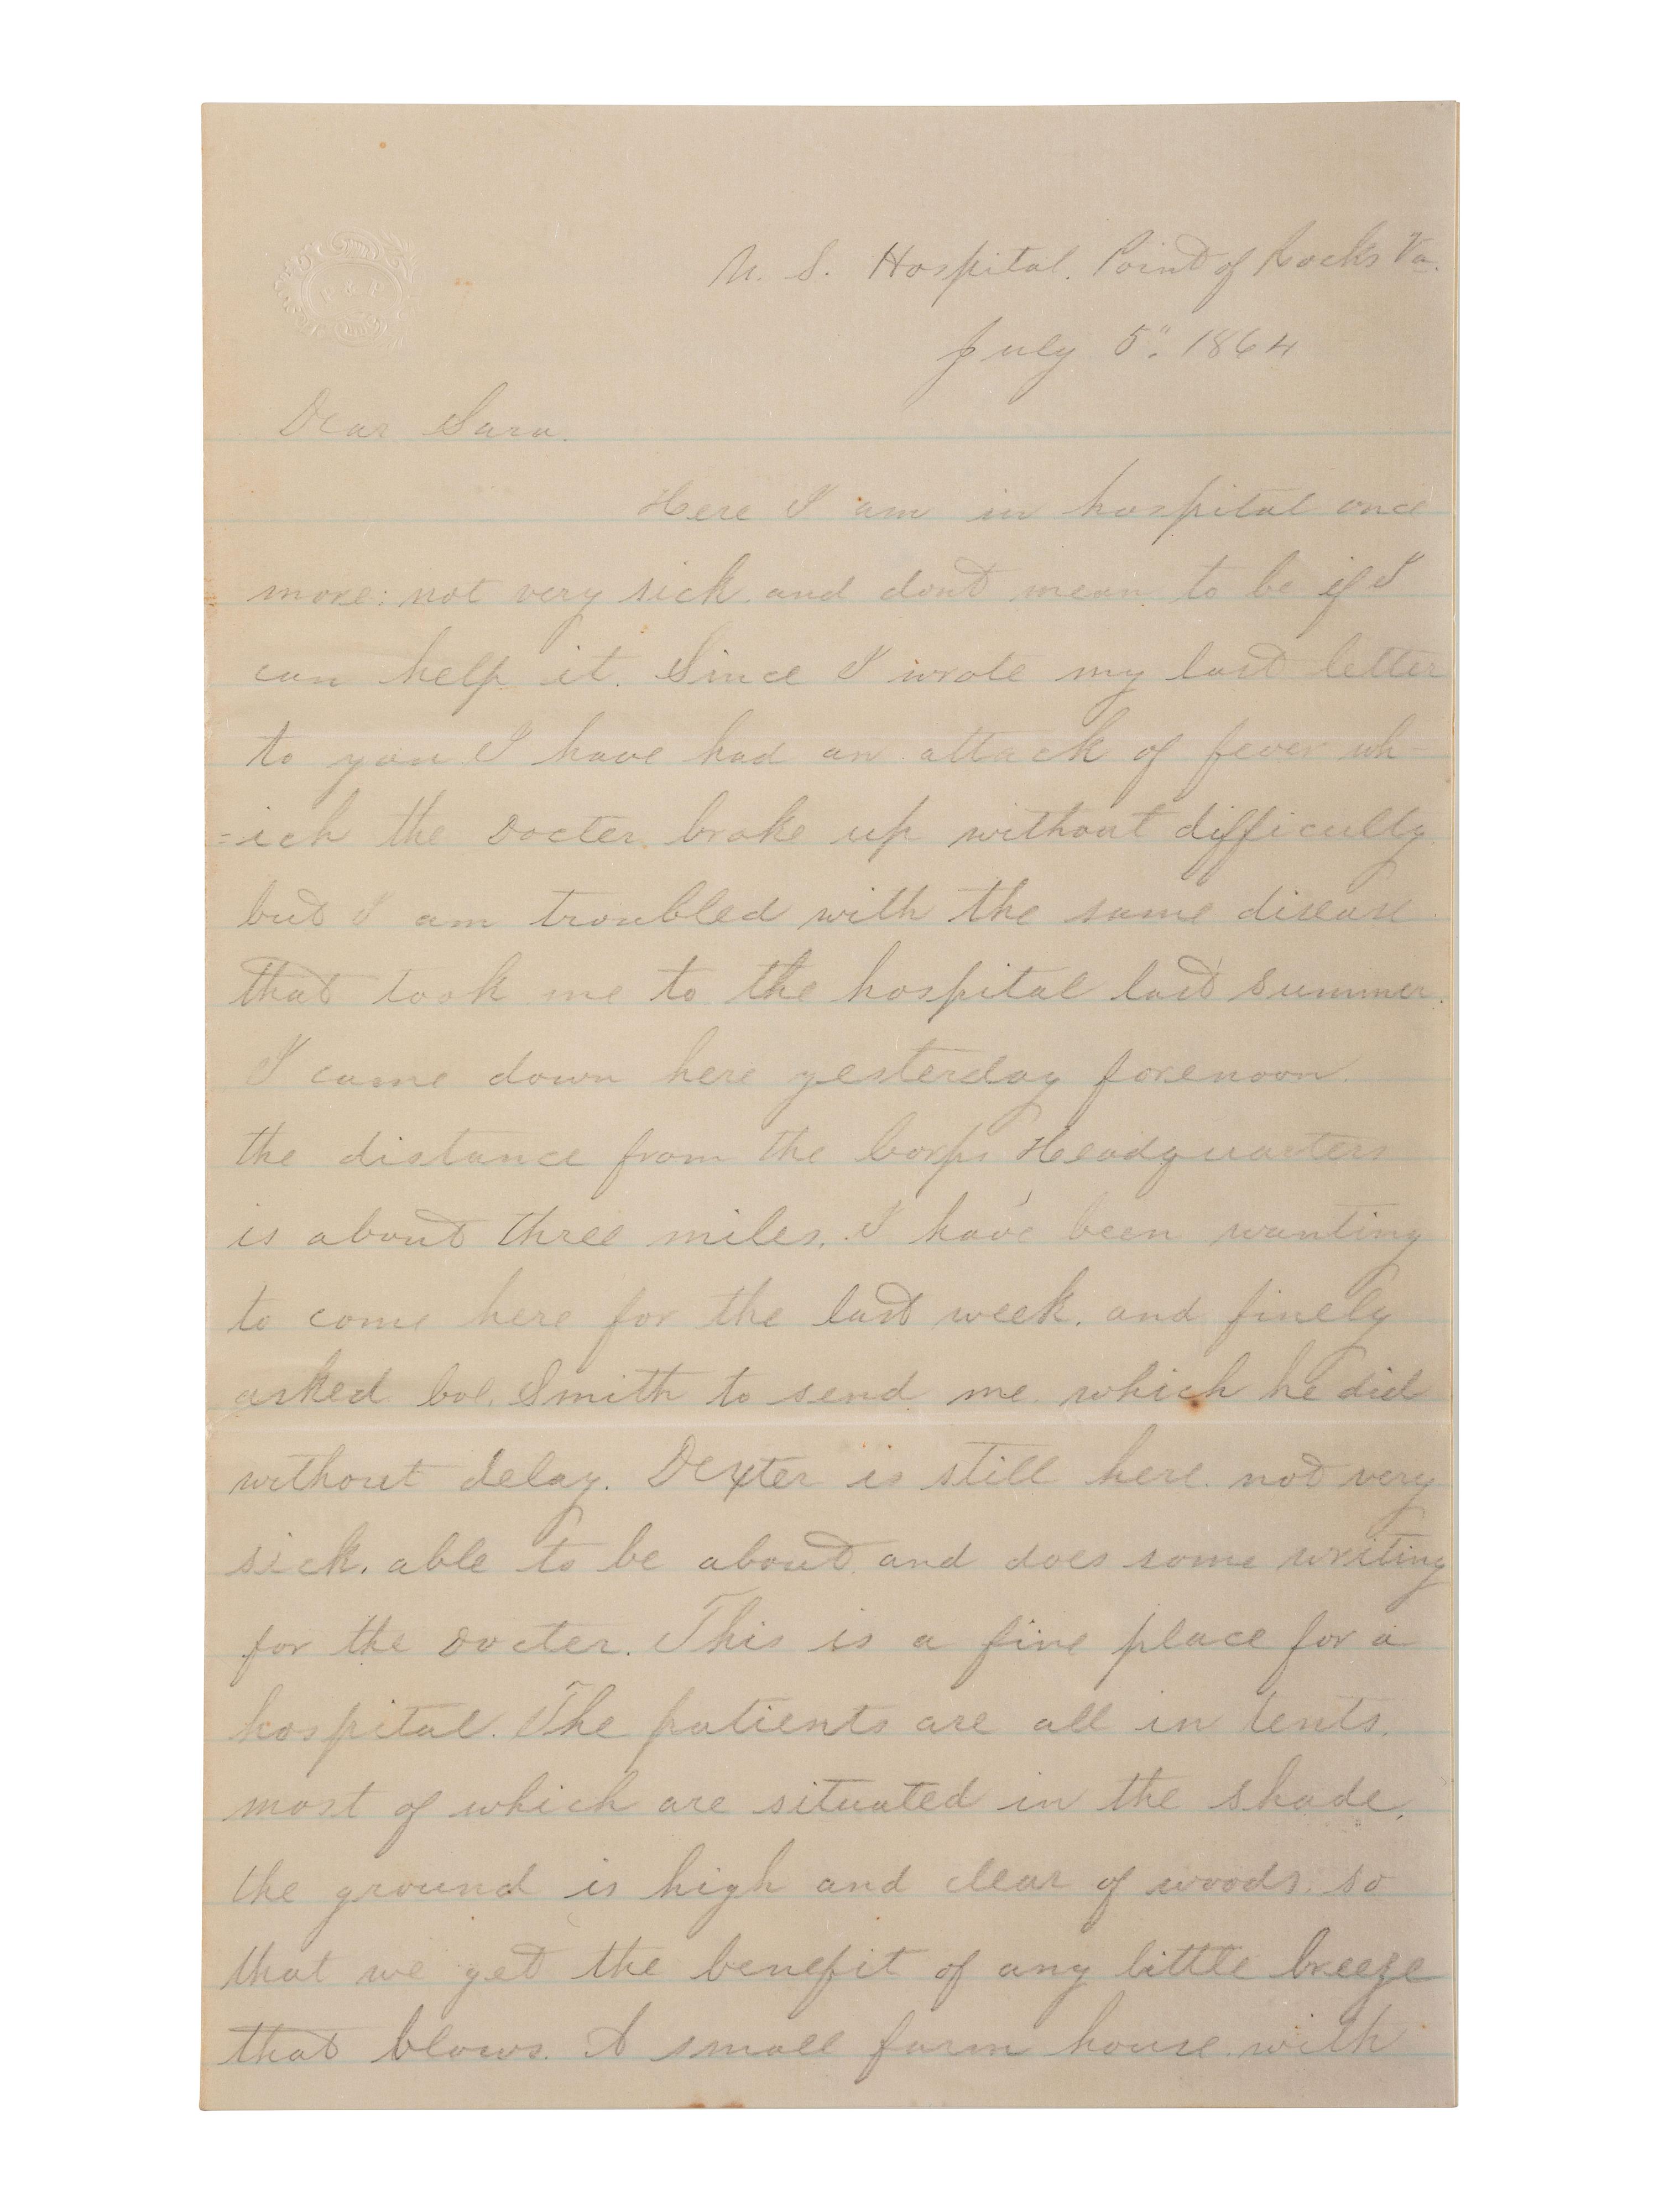 U. S. Hospital. Point of Rocks Va.
July 5". 1864
Dear Sara.
Here I am in hospital once
more: not very sick and dont mean to be if I
can help it. Since I wrote my last letter
to you I have had an attack of fever wh
=ich the Docter broke up without difficulty
but I am troubled with the same disease
that took me to the hospital last summer.
I came down here yesterday forenoon.
the distance from the Corps Headquarters
is about three miles. I have been wanting
to come here for the last week. and finely
asked Col. Smith to send me which he did
without delay. Dexter is still here. not very
sick. able to be about and does some writing
for the Docter. This is a fine place for a
hospital. The patients are all in tents.
most of which are situated in the shade.
the ground is high and clear of woods. so
that we get the benefit of any little breeze
that blows. A small farm house with